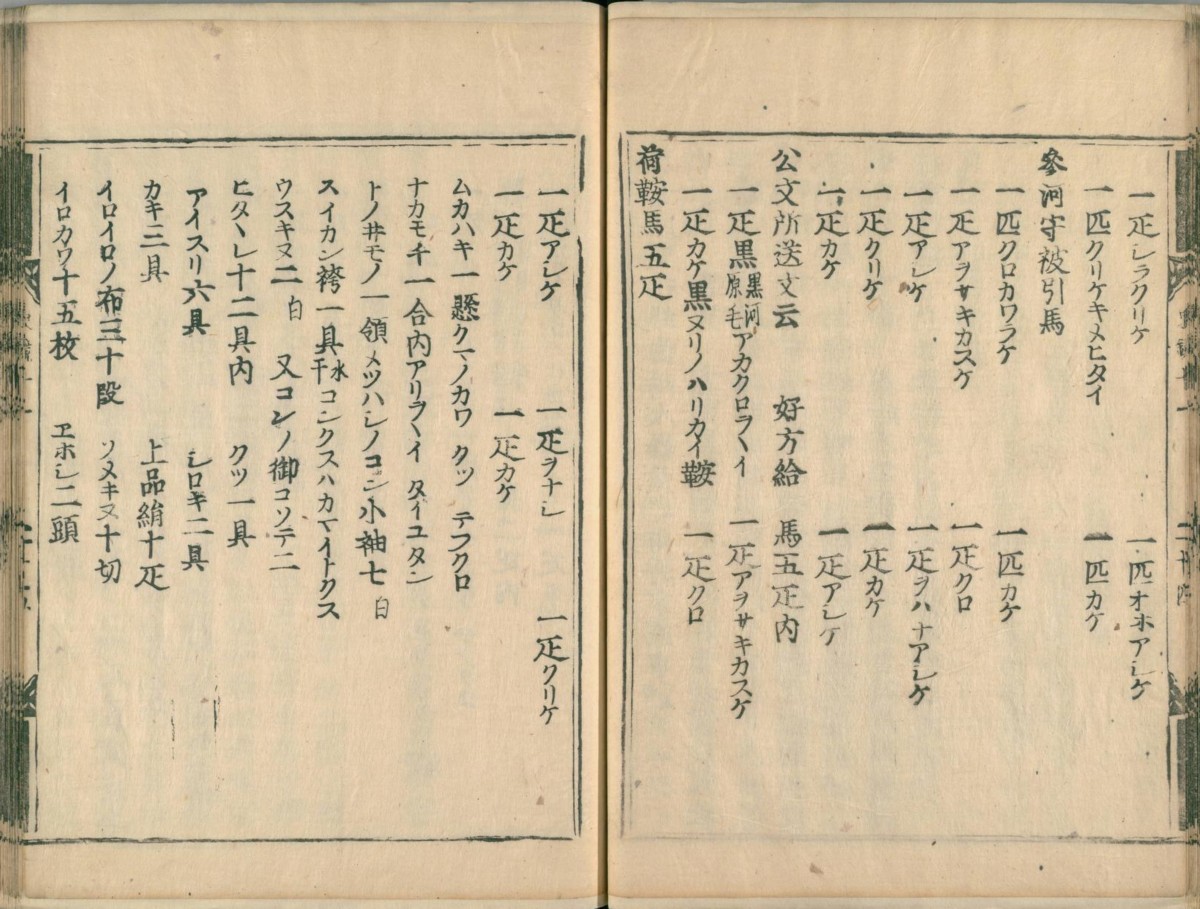 一疋シラクリケ　一匹オホアシケ
一匹クリケキメヒタイ　一匹カケ
參河守被引馬
一匹クロカワラケ　一匹カケ
一疋アヲサキカスケ　一疋クロ
一疋アシケ　一疋ヲハナアシケ
一疋クリケ　一疋カケ
一疋カケ　一疋アシケ
公文所送文云　好方給　馬五疋内
一疋黒黒河原毛アカクロラヽイ　一疋アヲサキカスケ
一疋カケ黒ヌリノハリカイ鞍　一疋クロ
荷鞍馬五疋
一疋アシケ　一疋ヲナシ　一疋クリケ
一疋カケ　一疋カケ
ムカハキ一懸クマノカワ　クツ　テフクロ
ナカモチ一合内アリラヽイ　タイユタン
トノヰモノ一領メツハシノコン小袖七白
スイカン袴一具水干コンクスハカマイトクス
ウスキヌ二白　又コンノ御コソテ二
ヒタヽレ十二具内　クツ一具
アイスリ六具　シロキ二具
カキ三具　上品絹十疋
イロイロノ布三十段　ソメキヌ十切
イロカワ十五枚　ヱホシ二頭